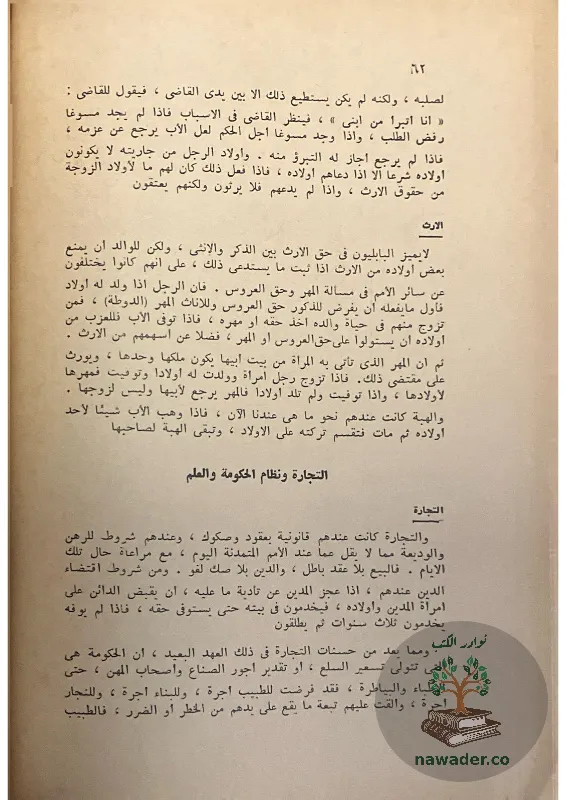 ٦٢
لصلبه ، ولكنه لم يكن يستطيع ذلك الا بين يدى القاضى ، فيقول للقاضى :
« انا اتبرأ من ابنى » ، فينظر القاضى فى الاسباب فاذا لم يجد مسوغا
رفض الطلب ، واذا وجد مسوغا اجل الحكم لعل الأب يرجع عن عزمه ،
فاذا لم يرجع اجاز له التبرؤ منه . واولاد الرجل من جاريته لا يكونون
اولاده شرعا الا اذا دعاهم اولاده ، فاذا فعل ذلك كان لهم ما لأولاد الزوجة
من حقوق الارث ، واذا لم يدعهم فلا يرثون ولكنهم يعتقون
الارث
لايميز البابليون فى حق الارث بين الذكر والانثى ، ولكن للوالد ان يمنع
بعض اولاده من الارث اذا ثبت ما يستدعى ذلك ، على انهم كانوا يختلفون
عن سائر الأمم فى مسألة المهر وحق العروس . فان الرجل اذا ولد له اولاد
فأول مايفعله أن يفرض للذكور حق العروس وللاناث المهر (الدوطة) ، فمن
تزوج منهم فى حياة والده اخذ حقه او مهره ، فاذا توفى الأب فللعزب من
اولاده ان يستولوا على حق العروس او المهر ، فضلا عن اسهمهم من الارث .
ثم ان المهر الذى تأتى به المرأة من بيت ابيها يكون ملكها وحدها ، ويورث
على مقتضى ذلك. فاذا تزوج رجل امرأة وولدت له اولادا وتوفيت فمهرها
لأولادها ، واذا توفيت ولم تلد اولادا فالمهر يرجع لأبيها وليس لزوجها .
والهبة كانت عندهم نحو ما هى عندنا الآن ، فاذا وهب الأب شيئا لأحد
أولاده ثم مات فتقسم تركته على الاولاد ، وتبقى الهبة لصاحبها
التجارة ونظام الحكومة والعلم
التجارة
والتجارة كانت عندهم قانونية بعقود وصكوك ، وعندهم شروط للرهن
والوديعة مما لا يقل عما عند الأمم المتمدنة اليوم ، مع مراعاة حال تلك
الايام . فالبيع بلا عقد باطل ، والدين بلا صك لغو . ومن شروط اقتضاء
الدين عندهم ، اذا عجز المدين عن تأدية ما عليه ، ان يقبض الدائن على
امرأة المدين واولاده ، فيخدمون فى بيته حتى يستوفى حقه ، فاذا لم يوفه
يخدمون ثلاث سنوات ثم يطلقون
ومما يعد من حسنات التجارة فى ذلك العهد البعيد ، ان الحكومة هى
التى تتولى تسعير السلع ، او تقدير اجور الصناع وأصحاب المهن ، حتى
الأطباء والبياطرة ، فقد فرضت للطبيب اجرة ، وللبناء اجرة ، وللنجار
اجرة ، وألقت عليهم تبعة ما يقع على يدهم من الخطر أو الضرر ، فالطبيب
نوادر الكتب
nawader.co